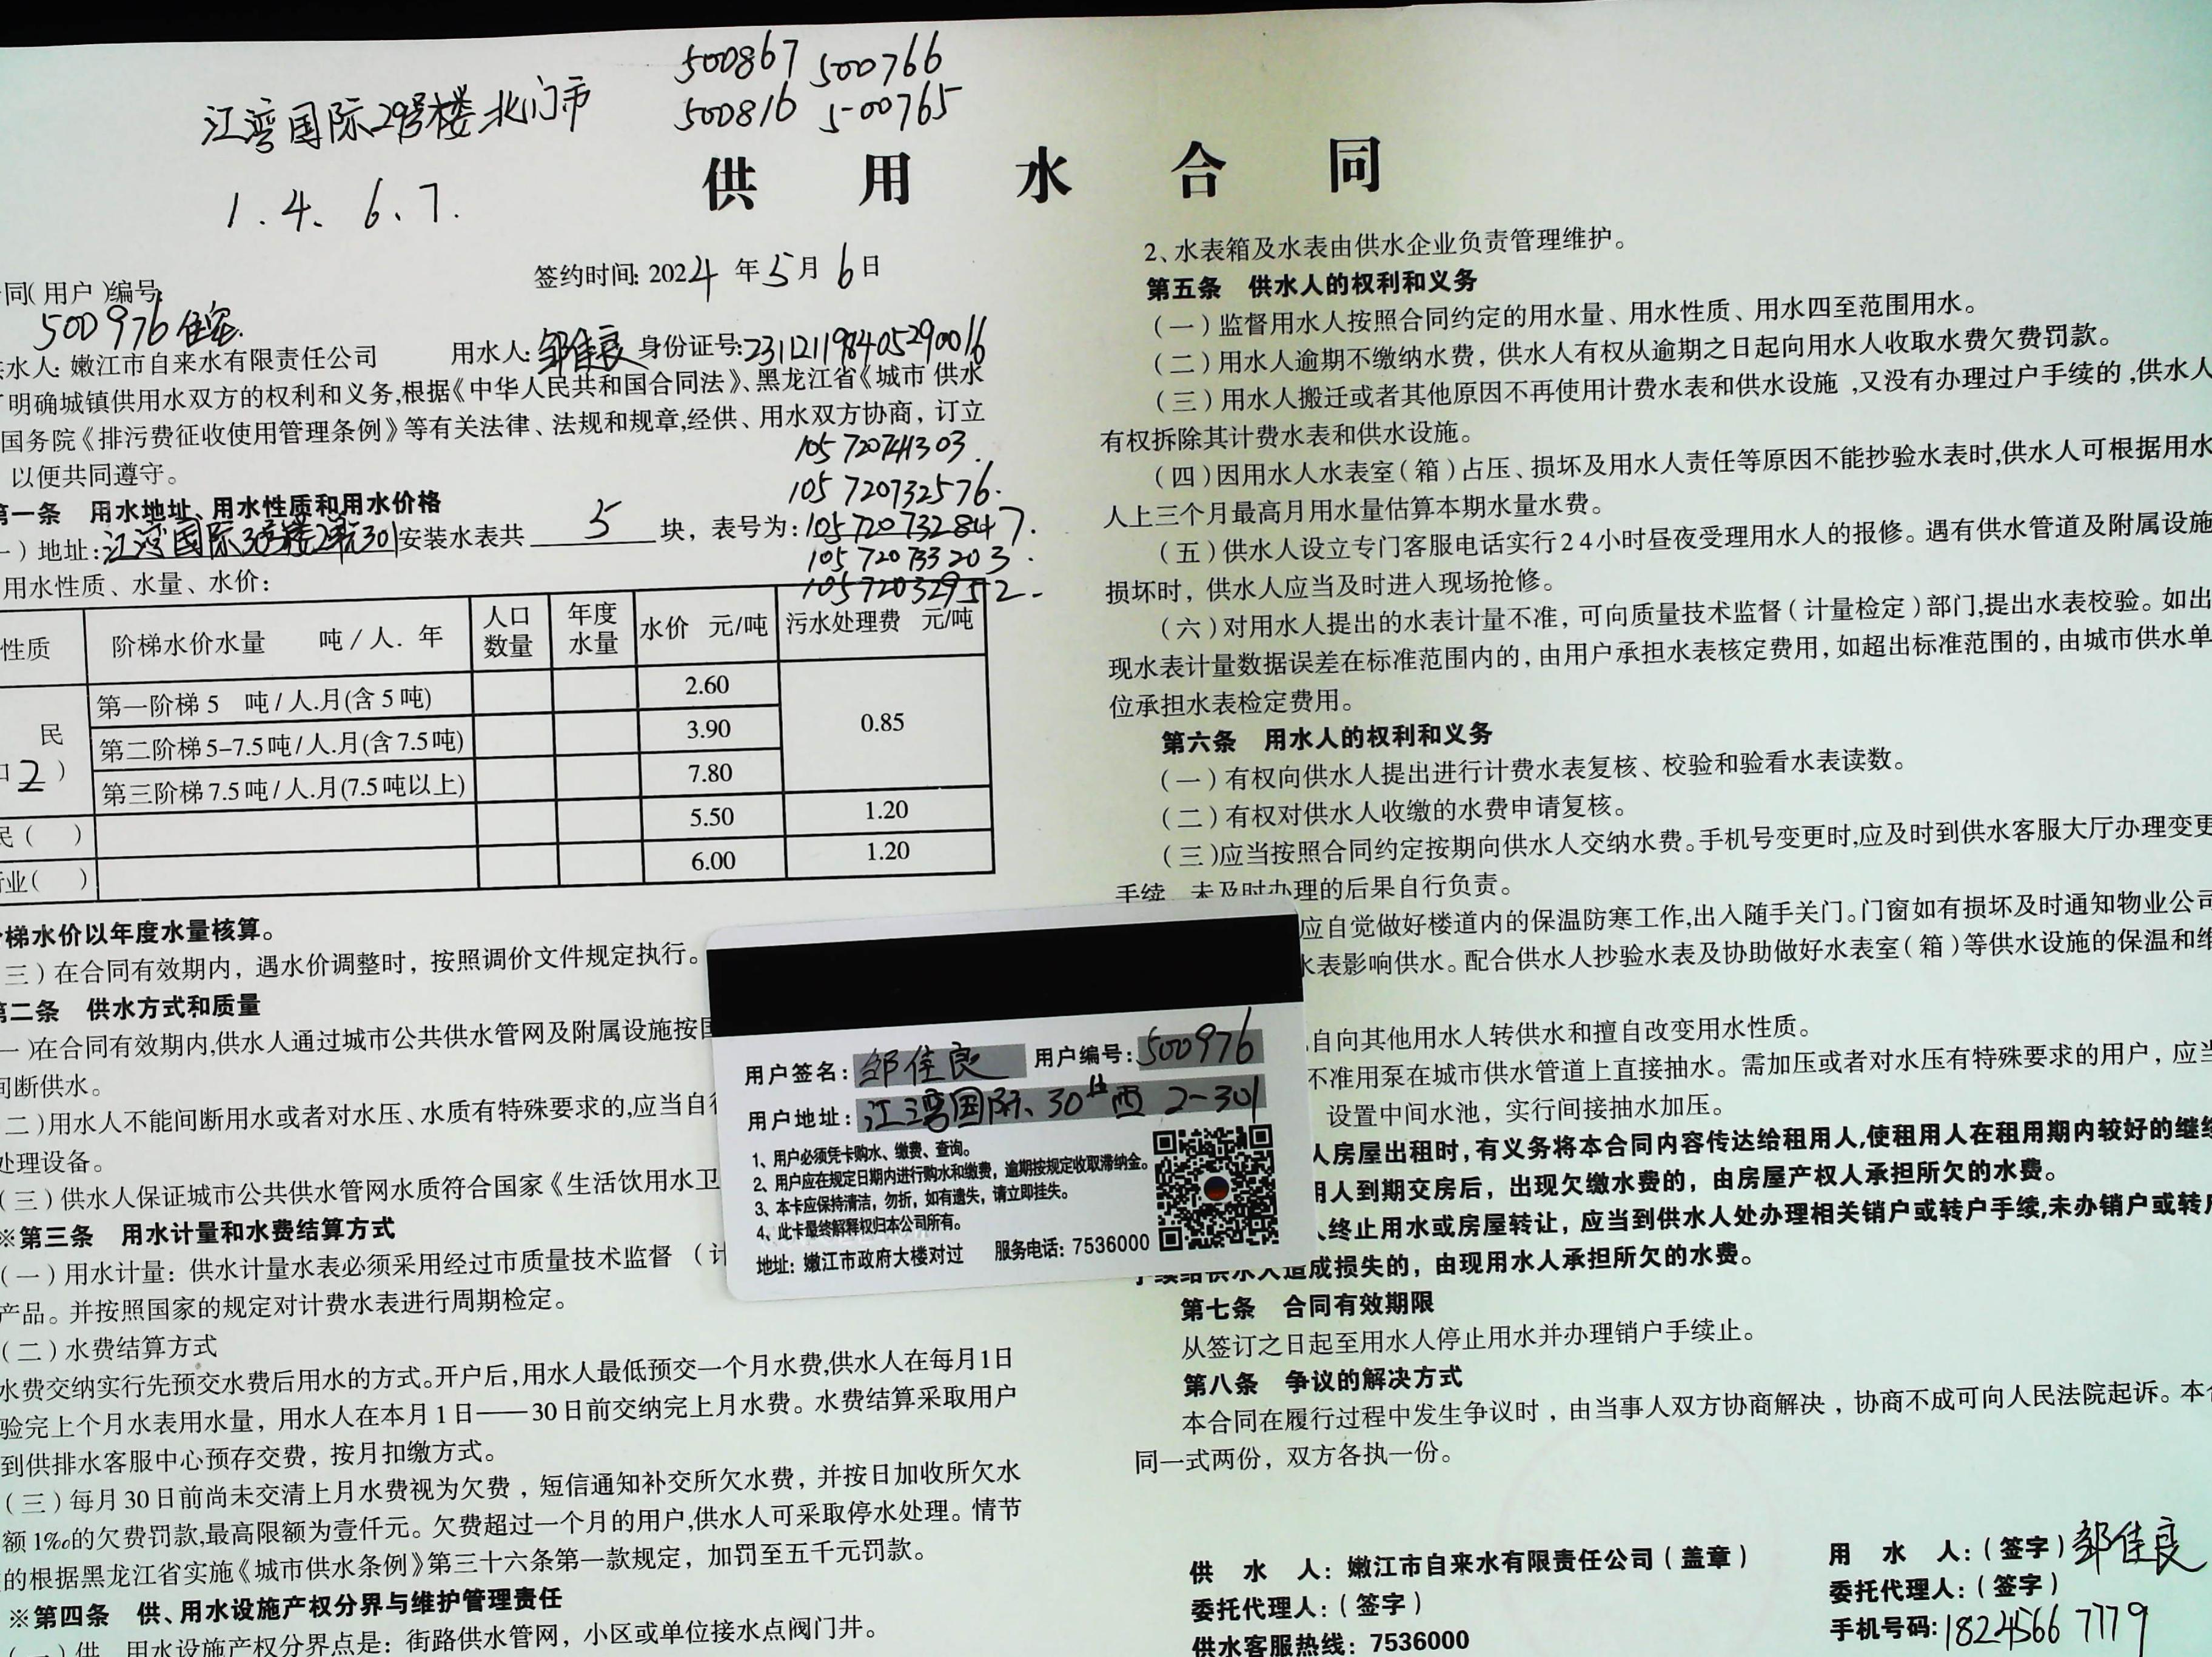 500867 500766
江湾国际29号楼北门市
500816 500765
供用水合同
1.4、6、7.
签约时间: 2024年5月6日
同(用户)编号:
500976住宅.
水人: 嫩江市自来水有限责任公司 用水人:邹佳良 身份证号:231121198405290016
明确城镇供用水双方的权利和义务,根据《中华人民共和国合同法》、黑龙江省《城市供水
国务院《排污费征收使用管理条例》等有关法律、法规和规章,经供、用水双方协商，订立
以便共同遵守。
105720741303.
105720732576.
第一条 用水地址、用水性质和用水价格
一）地址:江湾国际30号楼2单元301安装水表共 5 块，表号为:105720732847.
105720733203.
用水性质、水量、水价:
性质 阶梯水价水量 吨/人.年 人口数量 年度水量 水价 元/吨 污水处理费 元/吨
民 第一阶梯5 吨/人.月(含5吨) 2.60 0.85
口2） 第二阶梯5-7.5吨/人.月(含7.5吨) 3.90
第三阶梯7.5吨/人.月(7.5吨以上) 7.80
民（ ） 5.50 1.20
业（ ） 6.00 1.20
梯水价以年度水量核算。
三）在合同有效期内，遇水价调整时，按照调价文件规定执行。
第二条 供水方式和质量
一）在合同有效期内,供水人通过城市公共供水管网及附属设施按国
间断供水。
二）用水人不能间断用水或者对水压、水质有特殊要求的,应当自行
处理设备。
（三）供水人保证城市公共供水管网水质符合国家《生活饮用水卫
※第三条 用水计量和水费结算方式
（一）用水计量：供水计量水表必须采用经过市质量技术监督（计
产品。并按照国家的规定对计费水表进行周期检定。
（二）水费结算方式
水费交纳实行先预交水费后用水的方式。开户后,用水人最低预交一个月水费,供水人在每月1日
验完上个月水表用水量，用水人在本月1日——30日前交纳完上月水费。水费结算采取用户
到供排水客服中心预存交费，按月扣缴方式。
（三）每月30日前尚未交清上月水费视为欠费，短信通知补交所欠水费，并按日加收所欠水
额1‰的欠费罚款,最高限额为壹仟元。欠费超过一个月的用户,供水人可采取停水处理。情节
的根据黑龙江省实施《城市供水条例》第三十六条第一款规定，加罚至五千元罚款。
※第四条 供、用水设施产权分界与维护管理责任
（一）供、用水设施产权分界点是：街路供水管网，小区或单位接水点阀门井。
2、水表箱及水表由供水企业负责管理维护。
第五条 供水人的权利和义务
（一）监督用水人按照合同约定的用水量、用水性质、用水四至范围用水。
（二）用水人逾期不缴纳水费，供水人有权从逾期之日起向用水人收取水费欠费罚款。
（三）用水人搬迁或者其他原因不再使用计费水表和供水设施,又没有办理过户手续的,供水人
有权拆除其计费水表和供水设施。
（四）因用水人水表室（箱）占压、损坏及用水人责任等原因不能抄验水表时,供水人可根据用水
人上三个月最高月用水量估算本期水量水费。
（五）供水人设立专门客服电话实行24小时昼夜受理用水人的报修。遇有供水管道及附属设施
损坏时，供水人应当及时进入现场抢修。
（六）对用水人提出的水表计量不准，可向质量技术监督（计量检定）部门,提出水表校验。如出
现水表计量数据误差在标准范围内的，由用户承担水表核定费用，如超出标准范围的，由城市供水单
位承担水表检定费用。
第六条 用水人的权利和义务
（一）有权向供水人提出进行计费水表复核、校验和验看水表读数。
（二）有权对供水人收缴的水费申请复核。
（三）应当按照合同约定按期向供水人交纳水费。手机号变更时,应及时到供水客服大厅办理变更
手续，未及时办理的后果自行负责。
应自觉做好楼道内的保温防寒工作,出入随手关门。门窗如有损坏及时通知物业公司
水表影响供水。配合供水人抄验水表及协助做好水表室（箱）等供水设施的保温和维
自向其他用水人转供水和擅自改变用水性质。
不准用泵在城市供水管道上直接抽水。需加压或者对水压有特殊要求的用户，应当
设置中间水池，实行间接抽水加压。
人房屋出租时，有义务将本合同内容传达给租用人,使租用人在租用期内较好的继续
用人到期交房后，出现欠缴水费的，由房屋产权人承担所欠的水费。
人终止用水或房屋转让，应当到供水人处办理相关销户或转户手续,未办销户或转户
手续给供水人造成损失的，由现用水人承担所欠的水费。
第七条 合同有效期限
从签订之日起至用水人停止用水并办理销户手续止。
第八条 争议的解决方式
本合同在履行过程中发生争议时，由当事人双方协商解决，协商不成可向人民法院起诉。本合
同一式两份，双方各执一份。
供 水 人：嫩江市自来水有限责任公司（盖章）
委托代理人:（签字）
供水客服热线：7536000
用 水 人:（签字）邹佳良
委托代理人:（签字）
手机号码:18245667779
用户签名: 邹佳良 用户编号: 500976
用户地址: 江湾国际、30#西 2-301
1、用户必须凭卡购水、缴费、查询。
2、用户应在规定日期内进行购水和缴费，逾期按规定收取滞纳金。
3、本卡应保持清洁，勿折，如有遗失，请立即挂失。
4、此卡最终解释权归本公司所有。
地址：嫩江市政府大楼对过 服务电话：7536000